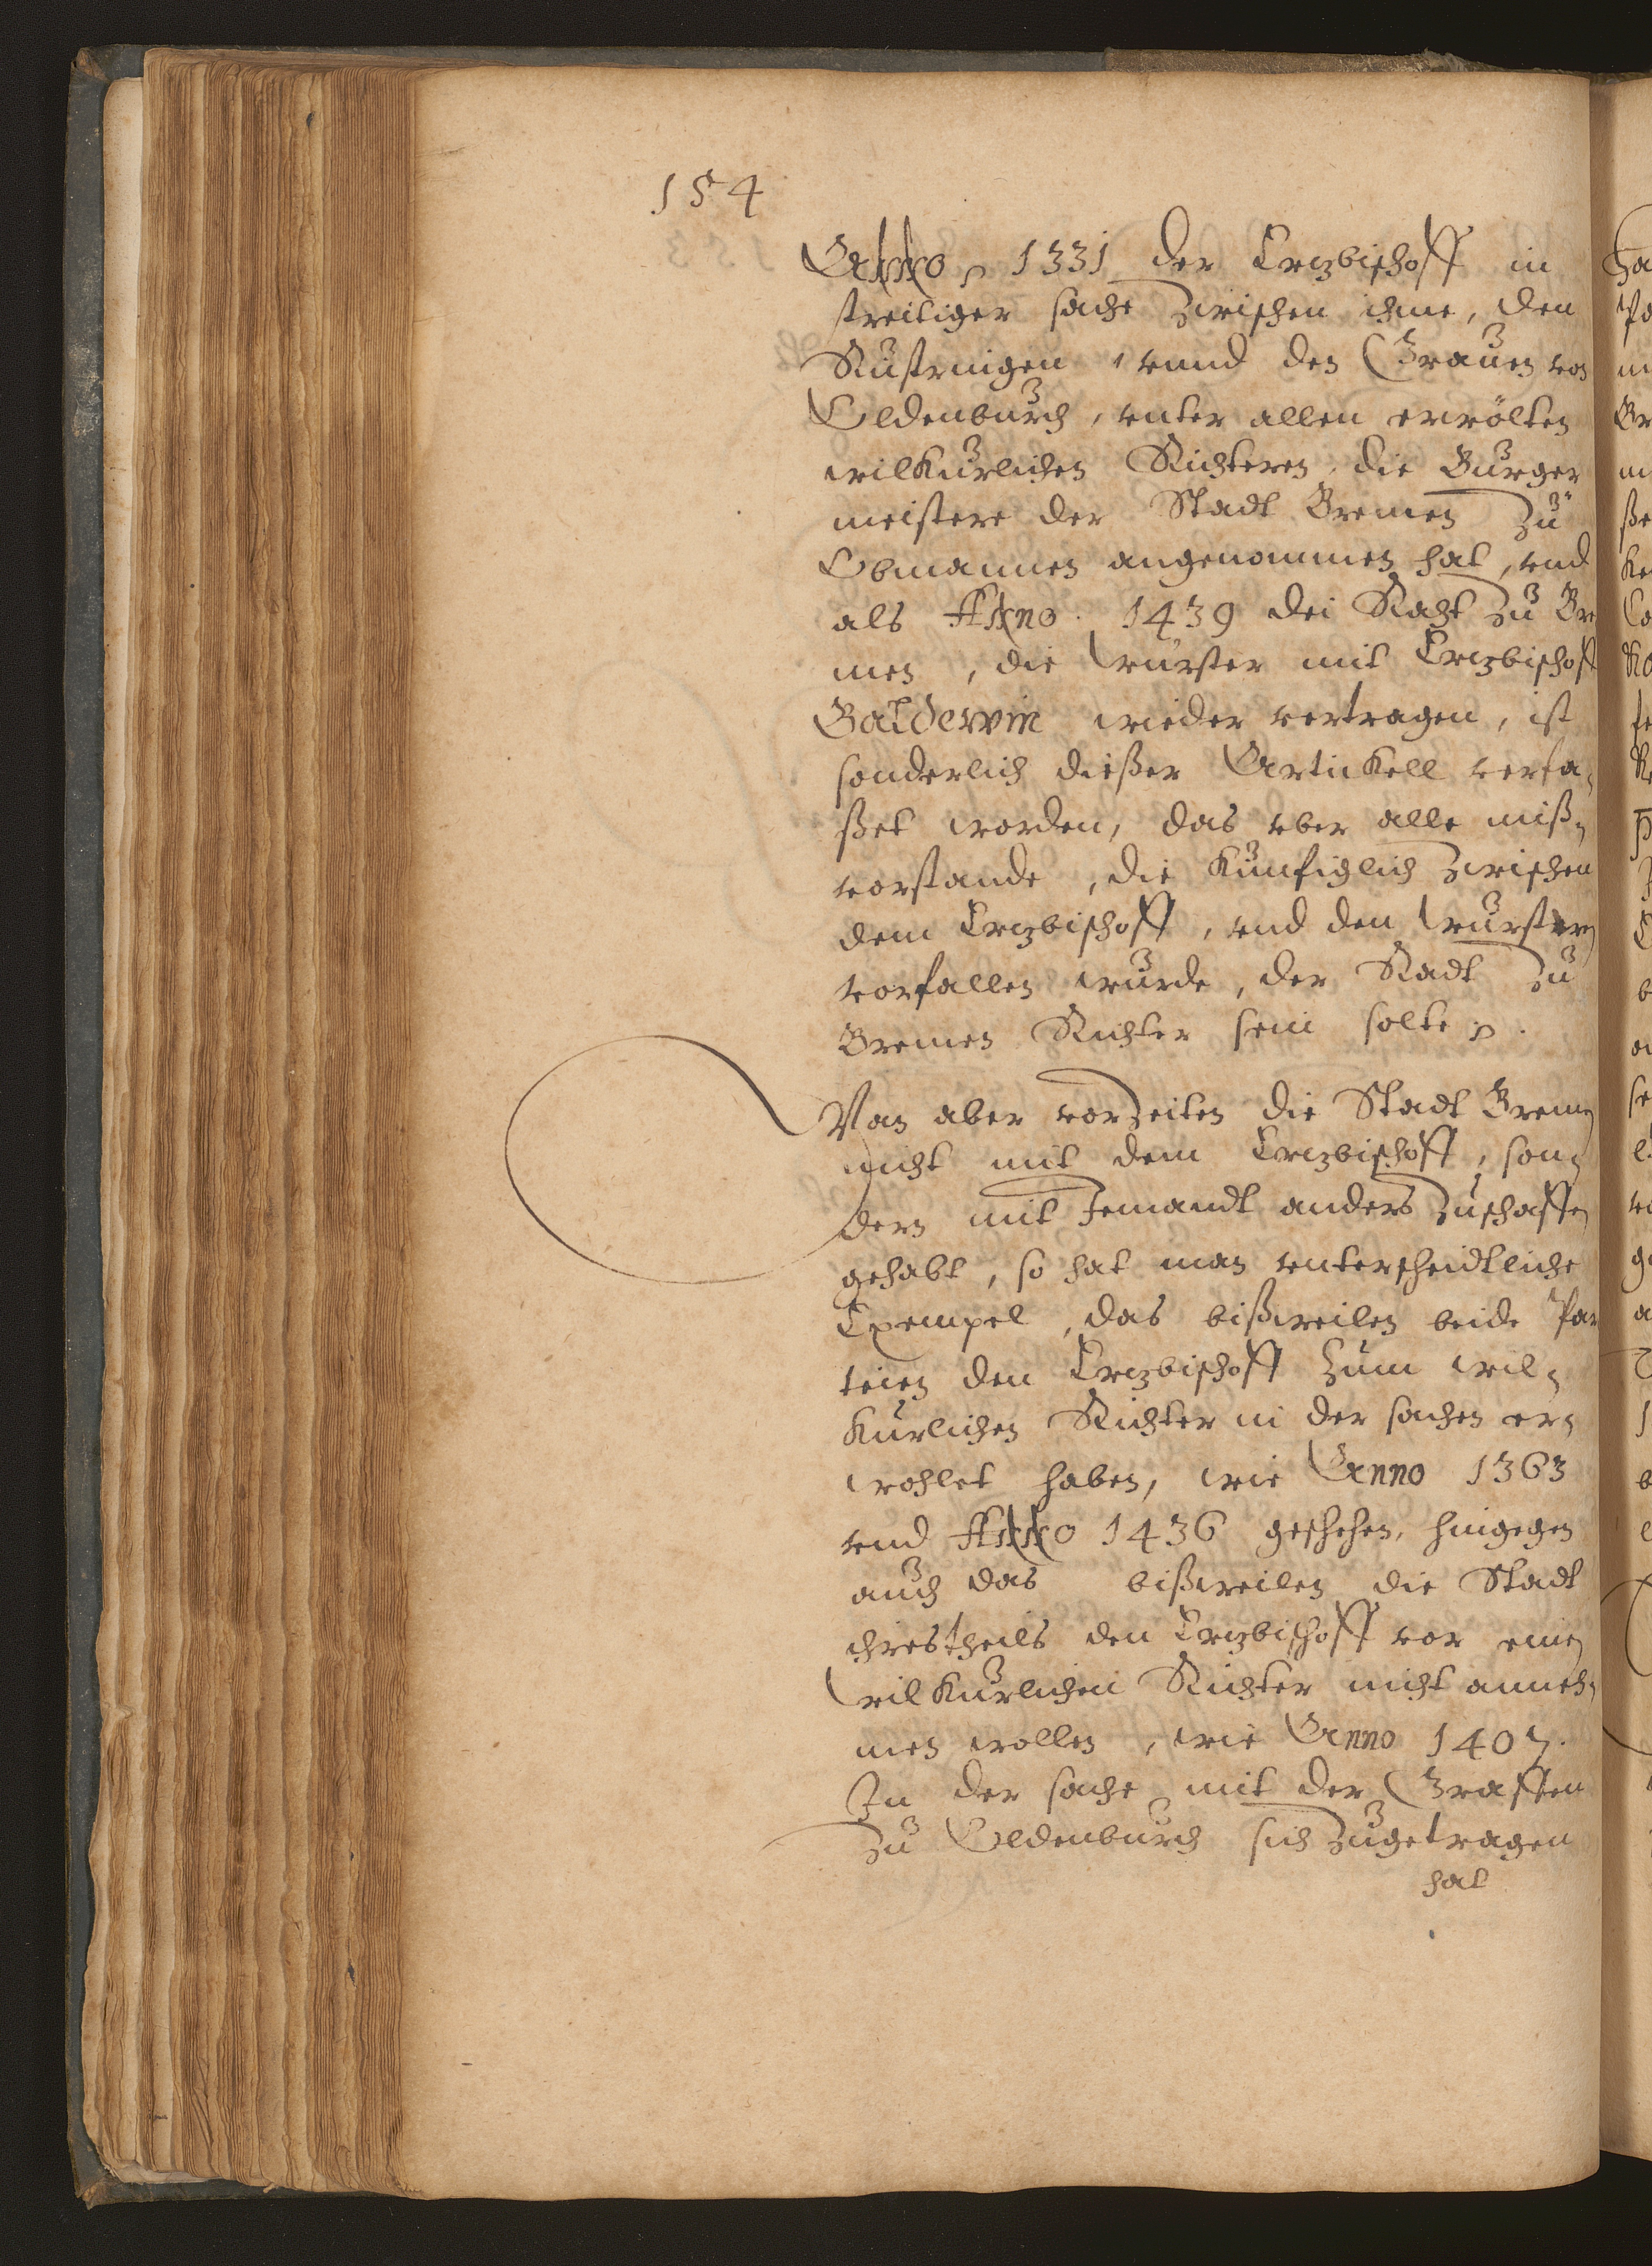 154
Anno 1331 der Ertzbischoff in
streitiger sache zwischen ihme, den
Rustringen, vnnd den Grauen von
Oldenburch, vnter allen erwölten
wilkurlichen Richteren, die Burger
meistere der Stadt Bremen zu
Obmannen angenommen hat, vnd
als Anno. 1439 dei Raht zu Bre
men, die Wurster mit Ertzbischoff
Baldewin wieder vertragen, ist
sonderlich dießer Artickell verfa-
ßet worden, das vber alle miß-
vorstande, die kunfiglich zwischen
dem Ertzbischoff, vnd den Wursten
vorfallen wurde, der Radt zu
Bremen Richter sein solte.
Wan aber vorzeiten die Stadt Bremen
nicht mit dem Ertzbischoff, son-
dern mit Jemandt anders zuschaffen
gehabt, so hat man vnterscheidtliche
Exempel, das bißweilen beide Par
teien den Ertzbischoff zum wil-
kurlichen Richter in der sachen er-
wohlet haben, wie Anno 1363
vnd Anno 1436 geschehen, hingegen
auch das bißweilen die Stadt
ihrestheils den Ertzbischoff vor einen
wilkurlichen Richter nicht anneh-
men wollen, wie Anno 1407.
In der sache mit der Graffen
zu Oldenburch sich zugetragen
hat